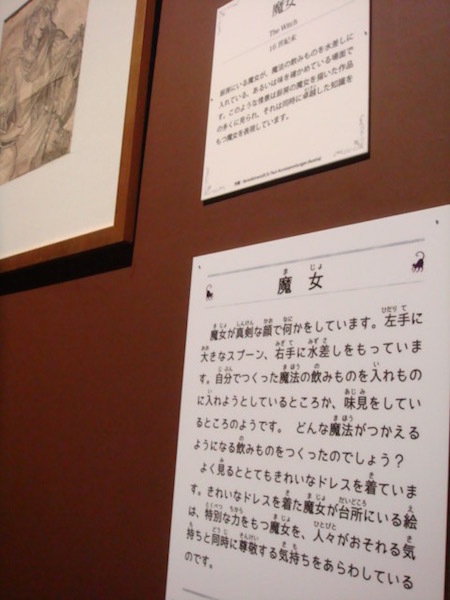 魔女
The Witch
16 世紀末
厨房にいる魔女が、魔法の飲みものを水差しに
入れている、あるいは味を確かめている場面で
す。このような情景は厨房の魔女を描いた作品
の多くに見られ、それは同時に卓越した知識を
もつ魔女を表現しています。
魔女
魔女が真剣な顔で何かをしています。左手に
大きなスプーン、右手に水差しをもっていま
す。自分でつくった魔法の飲みものを入れもの
に入れようとしているところか、味見をしてい
るところのようです。 どんな魔法がつかえる
ようになる飲みものをつくったのでしょう？
よく見るととてもきれいなドレスを着ていま
す。きれいなドレスを着た魔女が台所にいる絵
は、特別な力をもつ魔女を、人々がおそれる気
持ちと同時に尊敬する気持ちをあらわしている
のです。